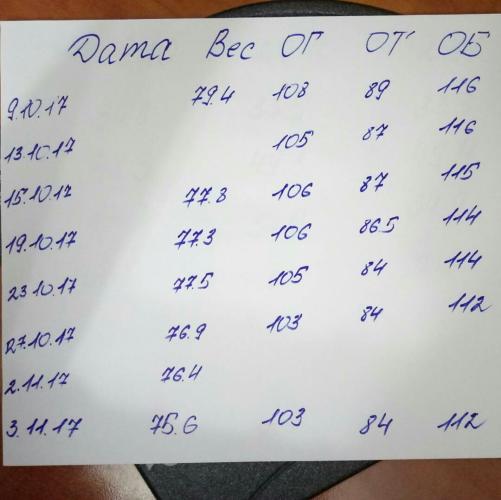 Дата Вес ОГ ОТ ОБ
9.10.17 79.4 108 89 116
13.10.17 105 87 116
15.10.17 77.8 106 87 115
19.10.17 77.3 106 86.5 114
23.10.17 77.5 105 84 114
27.10.17 76.9 103 84 112
2.11.17 76.4
3.11.17 75.6 103 84 112